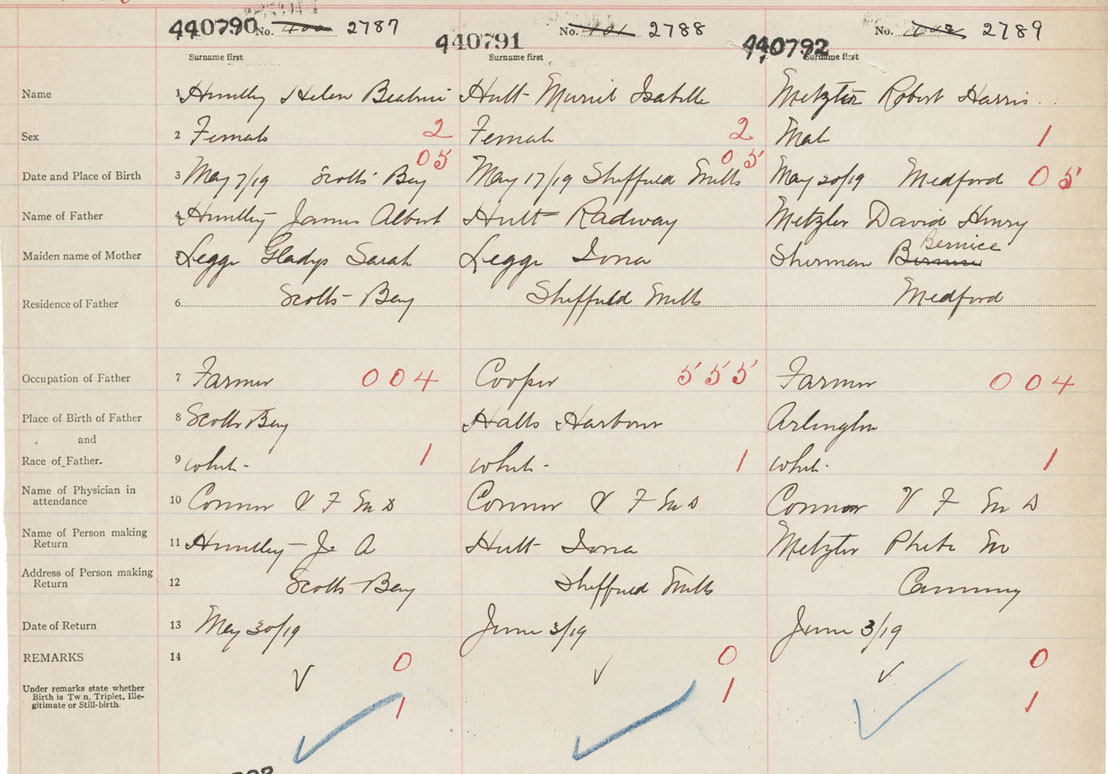 440790 No. 2787 440791 No. 2788 440792 No. 2789
Surname first Surname first Surname first
Name 1 Huntley Helen Beatrice Hult Muriel Isabelle Metzler Robert Harris
Sex 2 Female 2 Female 2 Male 1
Date and Place of Birth 3 May 7/19 Scotts Bay 05 May 17/19 Sheffield Mills 05 May 20/19 Medford 05
Name of Father 4 Huntley James Albert Hult Radway Metzler David Henry
Maiden name of Mother 5 Legge Gladys Sarah Legge Iona Sherman Bernice
Residence of Father 6 Scotts Bay Sheffield Mills Medford
Occupation of Father 7 Farmer 004 Cooper 555 Farmer 004
Place of Birth of Father 8 Scotts Bay Halls Harbour Arlington
and
Race of Father. 9 white 1 white 1 white 1
Name of Physician in
attendance 10 Connor V F M D Connor V F M D Connor V F M D
Name of Person making
Return 11 Huntley J A Hult Iona Metzler Phebe M
Address of Person making
Return 12 Scotts Bay Sheffield Mills Canning
Date of Return 13 May 30/19 June 3/19 June 3/19
REMARKS 14 0 0 0
Under remarks state whether
Birth is Twin, Triplet, Ille-
gitimate or Still-birth. 1 1 1